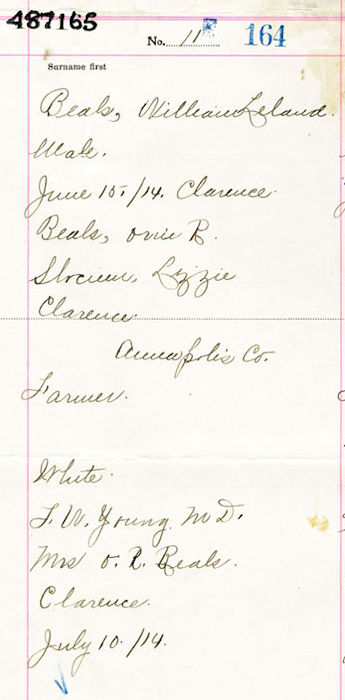 487165
No. 11 164
Surname first
Beals, William Leland.
Male.
June 15./14. Clarence.
Beals, Ovrie R.
Slocum, Lizzie
Clarence
Annapolis Co.
Farmer.
White.
F. W. Young M.D.
Mrs O. R. Beals.
Clarence.
July 10./14.